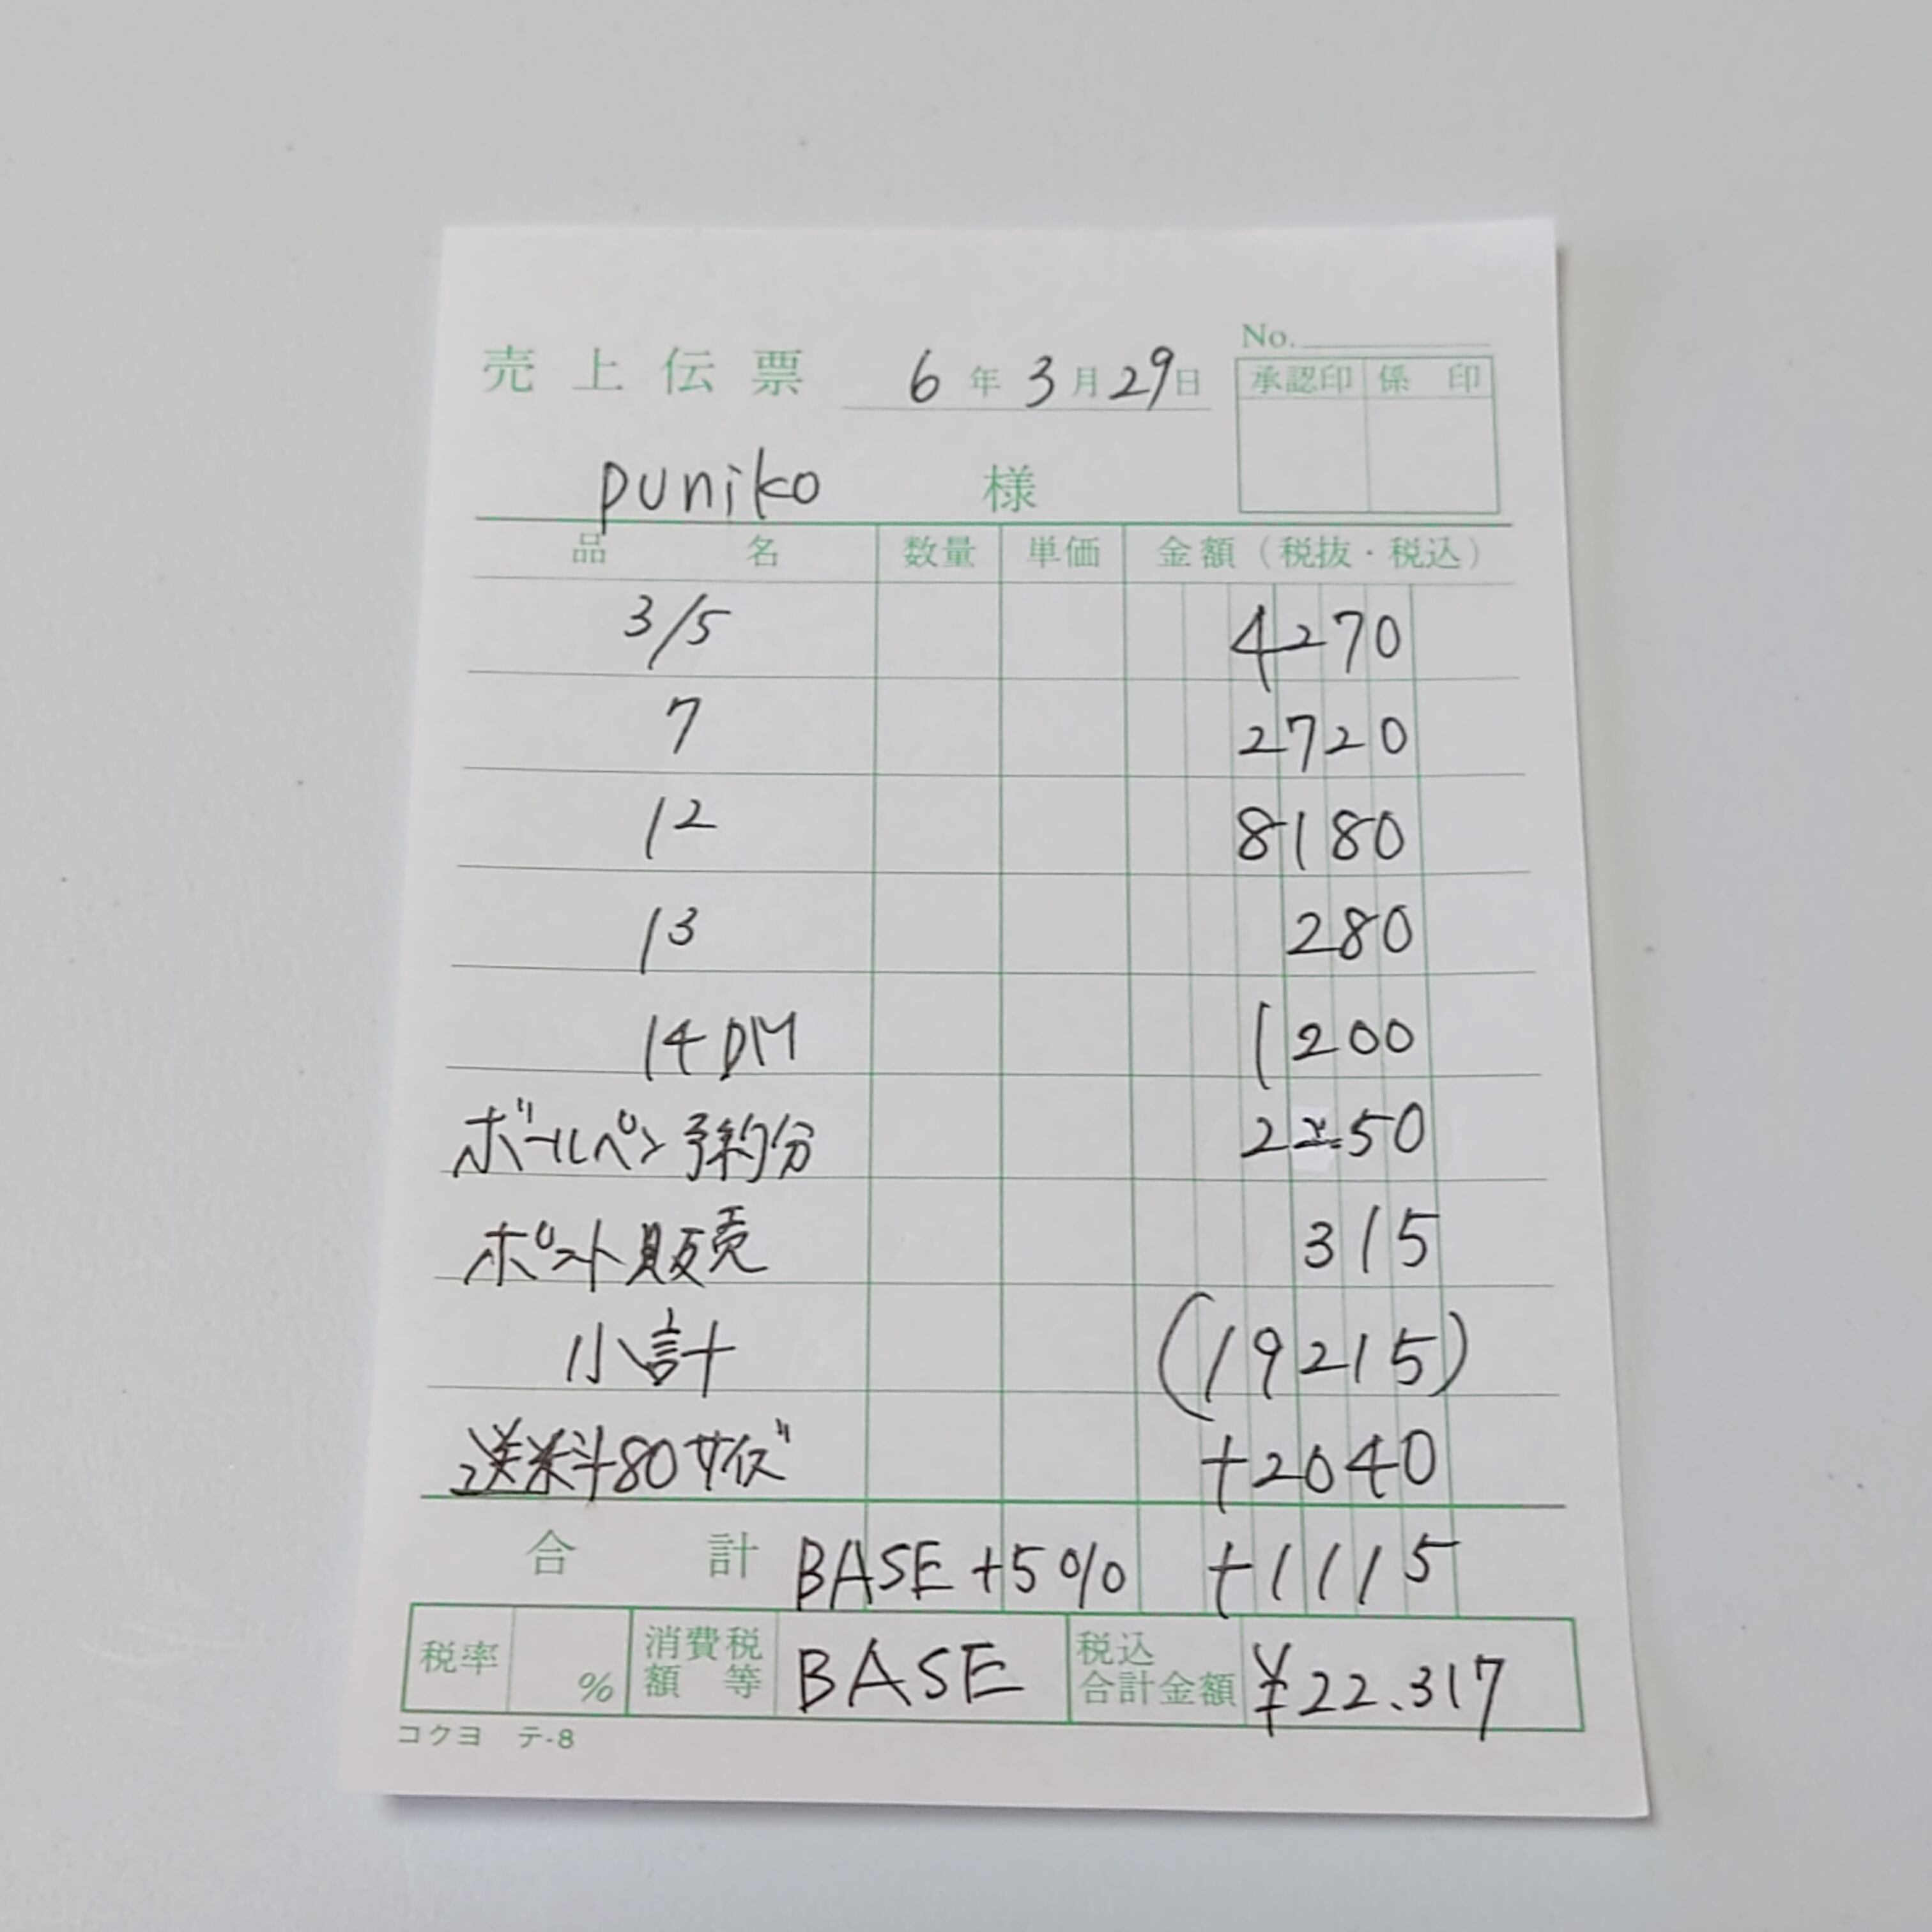 No.
売上伝票 6年3月29日
承認印 係印
puniko 様
品名 数量 単価 金額(税抜・税込)
3/5 4270
7 2720
12 8180
13 280
14 DM 1200
ボールペン予約分 2250
ポスト販売 315
小計 (19215)
送料80サイズ +2040
合計 BASE+5% +1115
税率 % 消費税額等 BASE 税込合計金額 ¥22.317
コクヨ テ-8